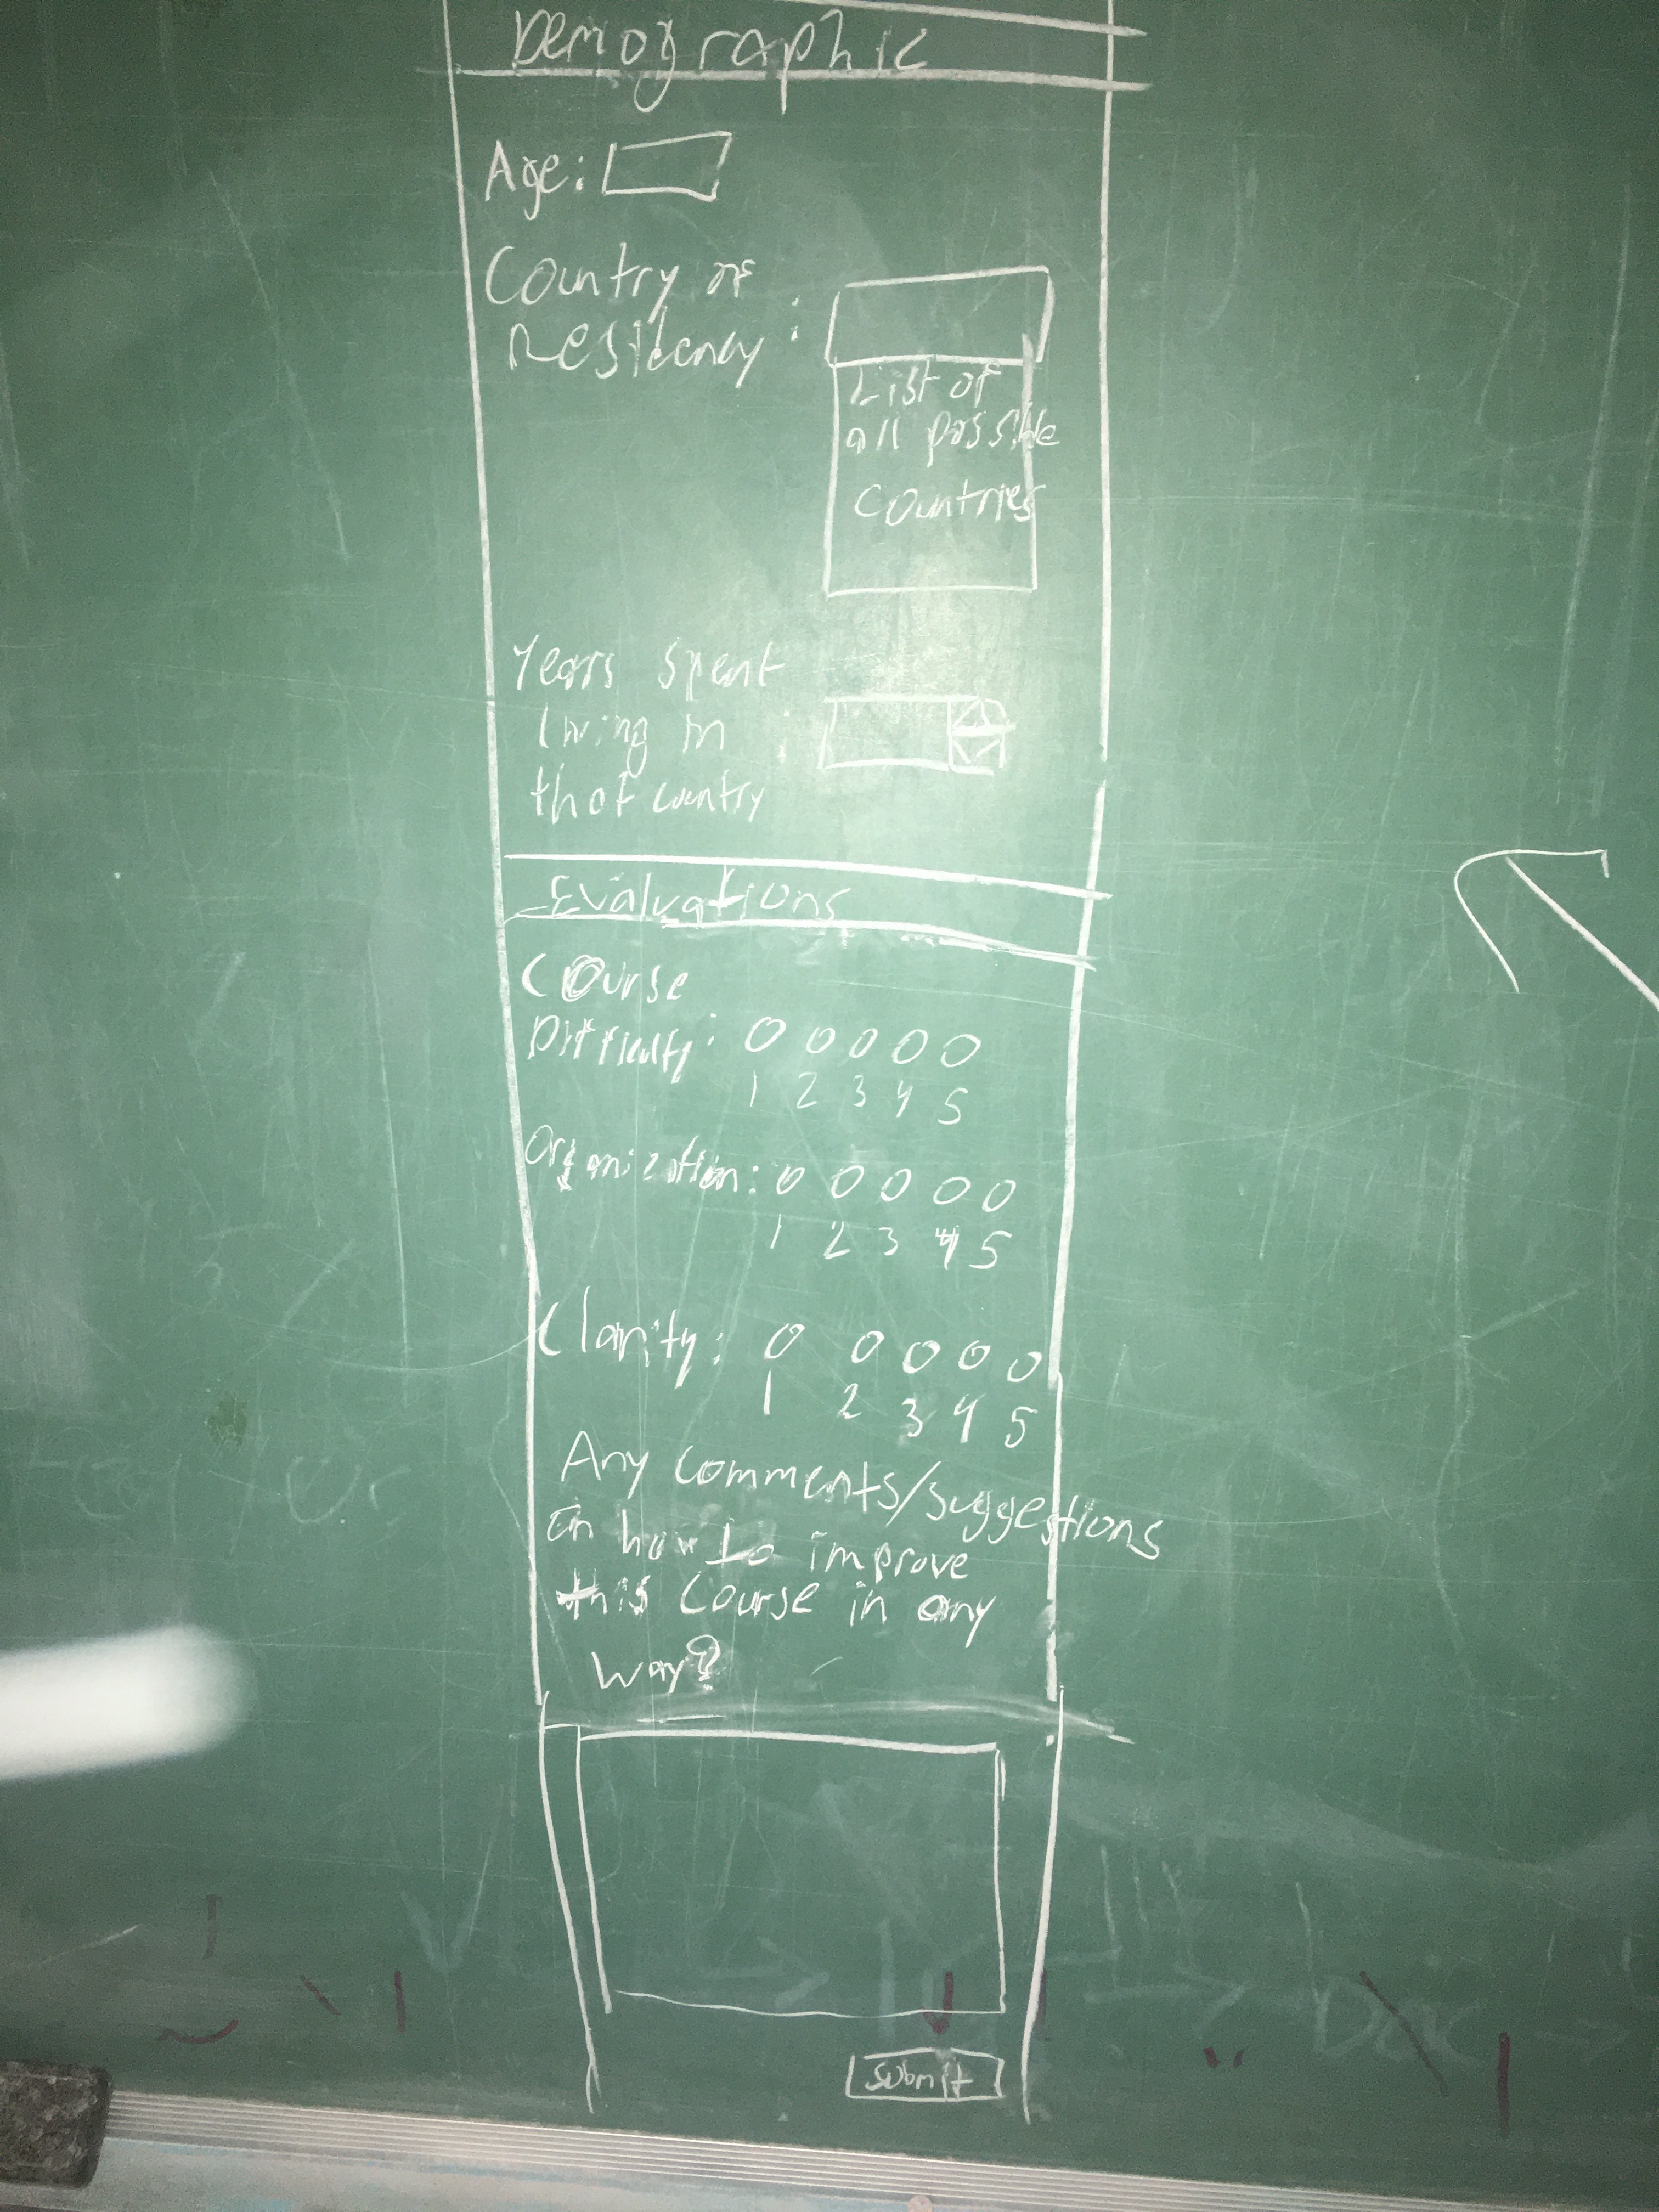 Demographic
Age:
Country of
Residency:
List of
all possible
Countries
Years spent
living in :
that country
Evaluations
Course
Difficulty: O O O O O
1 2 3 4 5
Organization: O O O O O
1 2 3 4 5
Clarity: O O O O O
1 2 3 4 5
Any comments/suggestions
In how to improve
this Course in any
way?
Submit